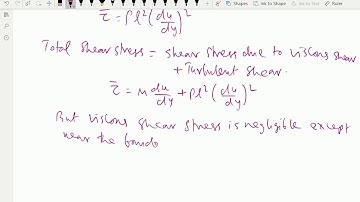 Shapes Ink to Shape
τ̄ = ρl²(du/dy)²
Total shear stress = shear stress due to viscous shear
+ Turbulent shear.
τ̄ = μ du/dy + ρl²(du/dy)²
But viscous shear stress is negligible except
near the boundo